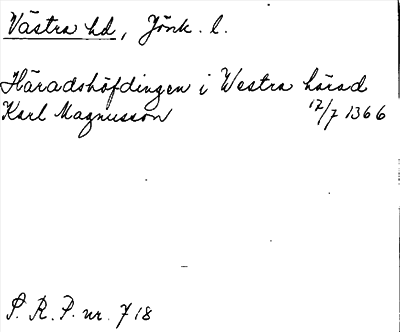 Västra hd, Jönk. l.
Häradshöfdingen i Westra härad
Karl Magnusson 17/7 1366
S. R. P. nr. 718